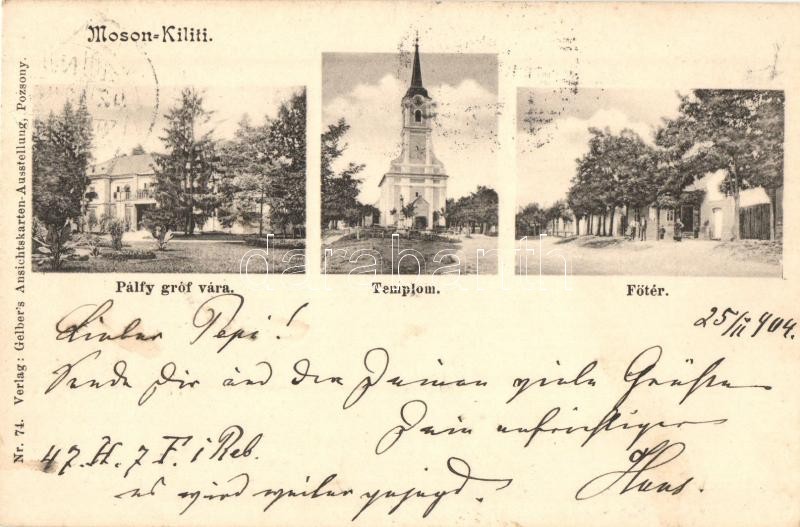 Moson-Kiliti.
Nr. 74. Verlag: Gelber's Ansichtskarten-Ausstellung, Pozsony.
Pálfy gróf vára.
Templom.
Főtér.
darabanth
25/II 904.
Lieber Pepi!
Sende Dir und den Deinen viele Grüße
Dein aufrichtiger
47. H. 7 F. 1 Reb.
Hans.
es wird weiter gejagt.